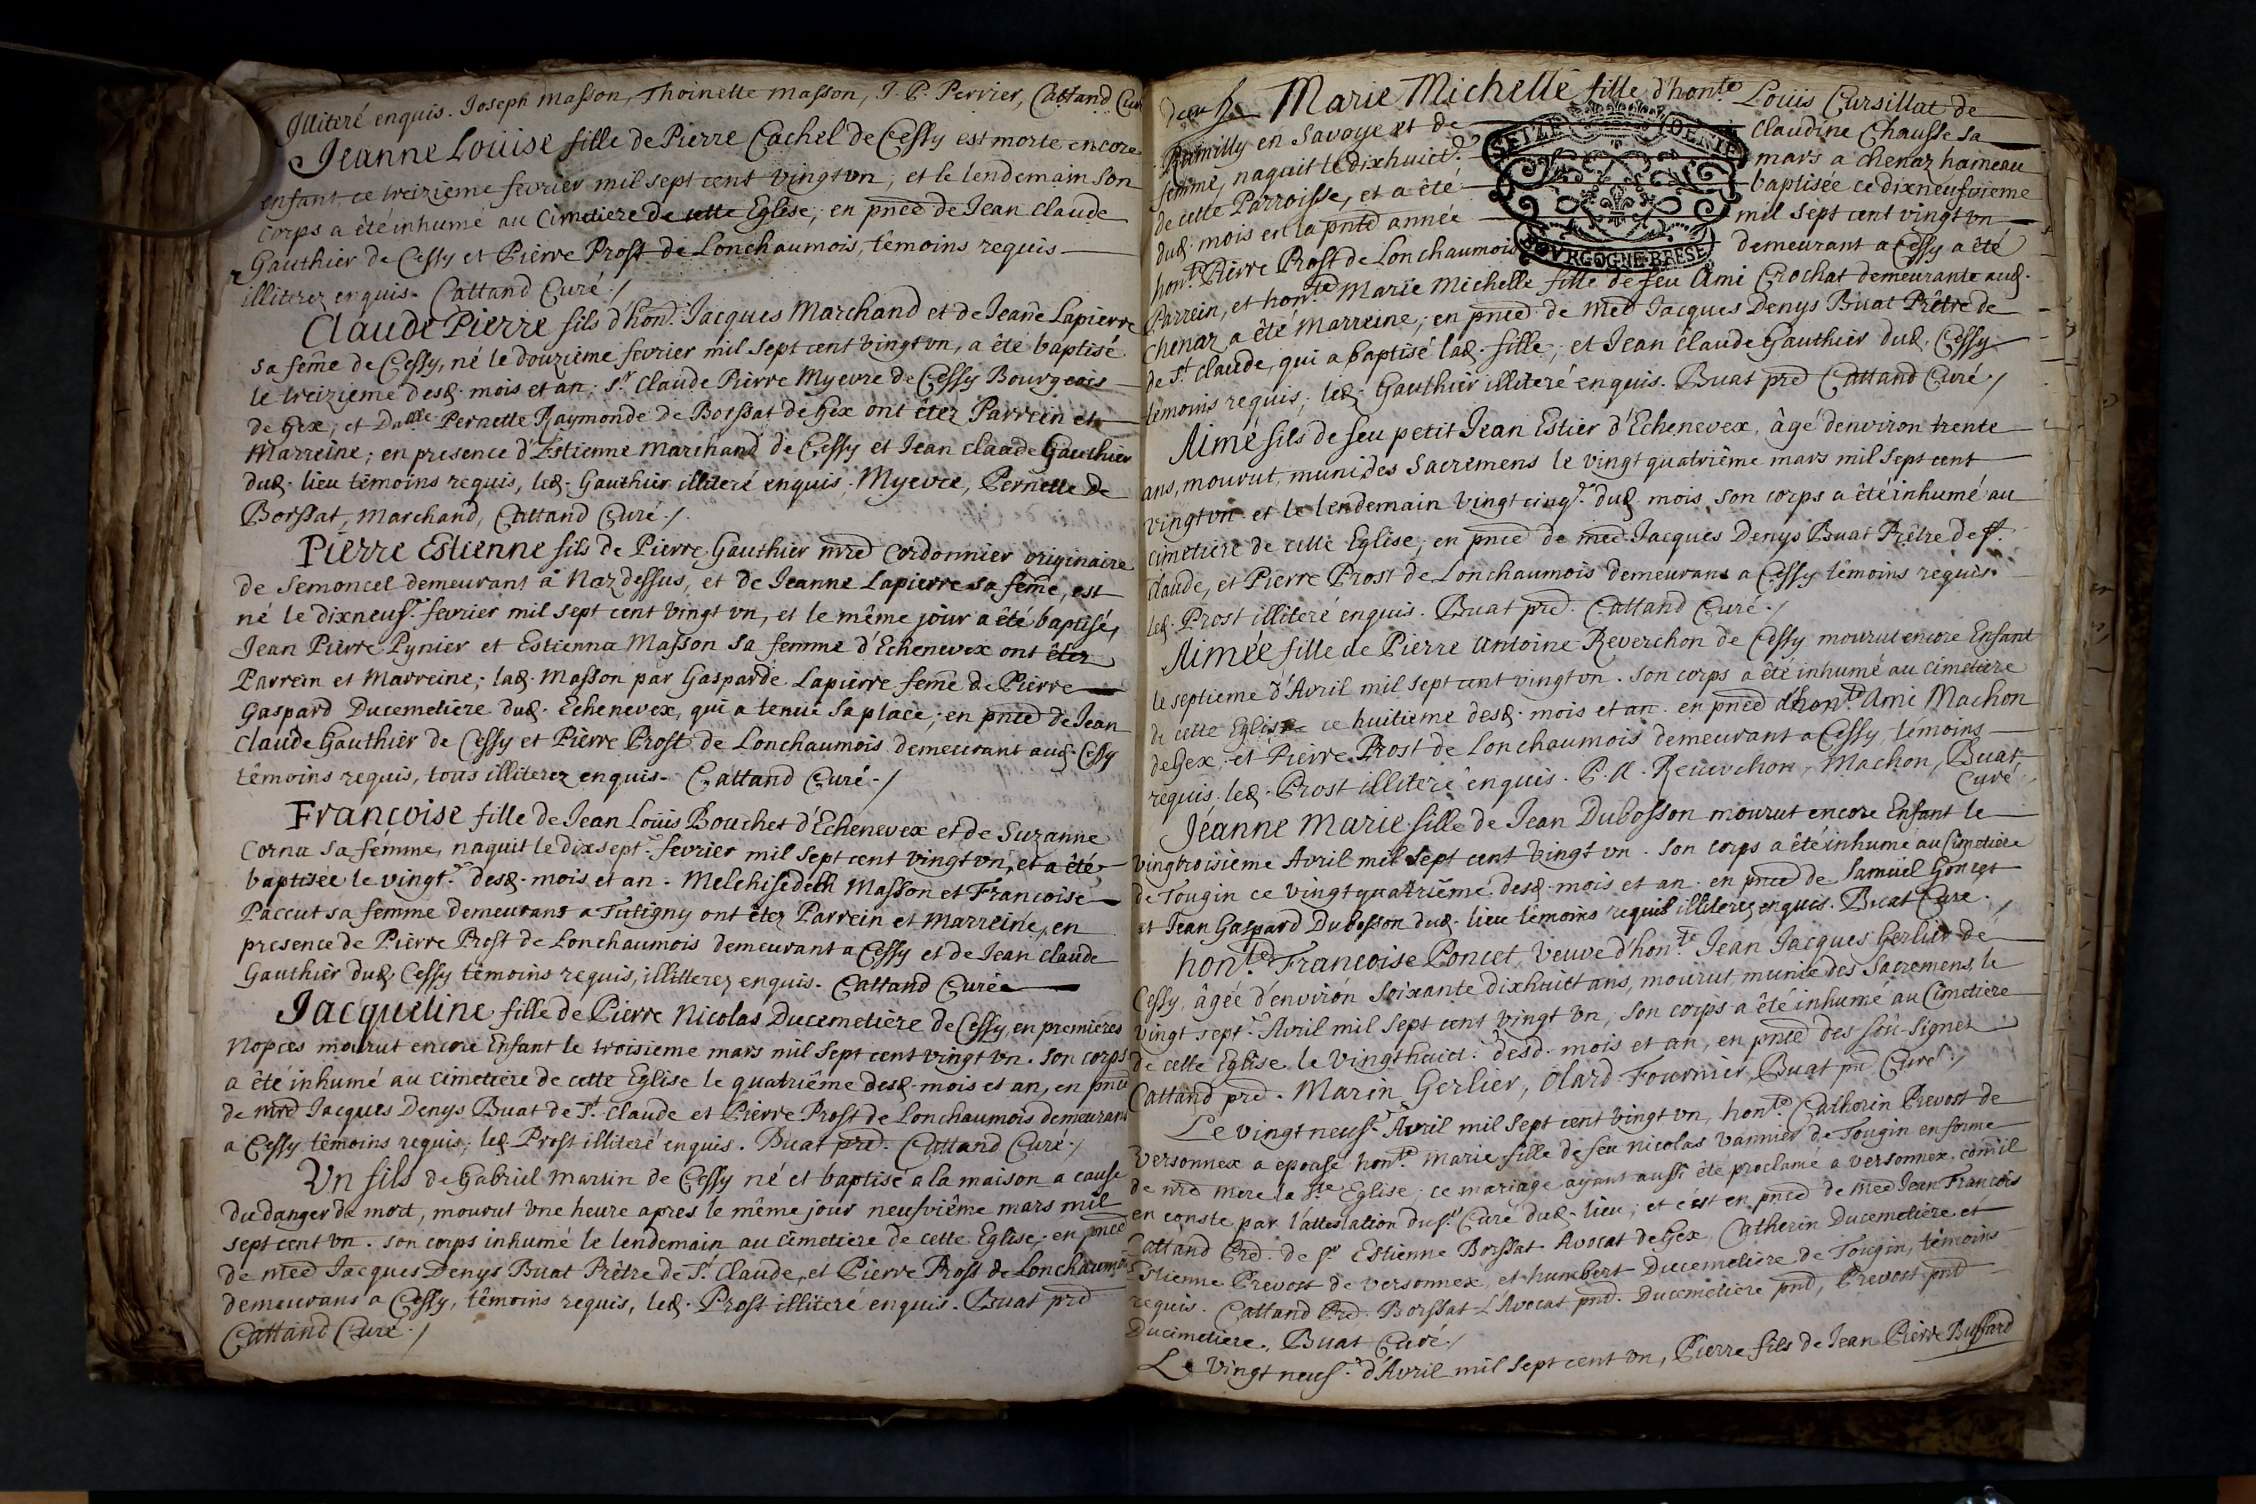 Jlliteré enquis. Joseph Masson, Thoinette Masson, J. P. Perrier, Cattand Cur
Jeanne Loüise fille de Pierre Cachel de Cessy est morte encore
enfant ce treizieme fevrier mil sept cent vingt vn, et le lendemain son
corps a été inhumé au Cimetiere de cette Eglise, en pnce de Jean Claude
Gauthier de Cessy et Pierre Prost de Lonchaumois, têmoins requis
illiterez enquis. Cattand Curé ./
Claude Pierre fils d'hon. Jacques Marchand et de Jeane Lapierre
sa feme de Cessy, né le douzieme fevrier mil sept cent vingt vn, a été baptisé
le treizieme desd. mois et an; Sr. Claude Pierre Myevre de Cessy Bourgeois
de Gex, et Dalle Pernette Raymonde de Borssat de Gex ont êtez Parrein et
Marreine; en presence d'Estienne Marchand de Cessy et Jean Claude Gauthier
dud. lieu têmoins requis, led. Gauthier illiteré enquis. Myevre, Pernette De
Borssat, Marchand, Cattand Curé ./
Pierre Estienne fils de Pierre Gauthier mre Cordonnier originaire
de Semoncel demeurant à Naz dessus, et de Jeanne Lapierre sa feme, est
né le dixneuf. fevrier mil sept cent vingt vn, et le même jour a été baptisé,
Jean Pierre Pynier et Estienna Masson sa femme d'Echenevex ont êtez
Parrein et Marreine; lad. Masson par Gasparde Lapierre feme de Pierre
Gaspard Ducemetiere dud. Echenevex, qui a tenue sa place; en pnce de Jean
Claude Gauthier de Cessy et Pierre Prost de Lonchaumois demeurant aud. Cessy
têmoins requis, tous illiterez enquis. Cattand Curé ./
Francoise fille de Jean Loüis Bouchet d'Echenevex et de Suzanne
Cornu sa femme, naquit le dixsept. fevrier mil sept cent vingt vn, et a été
baptisée le vingt. desd. mois et an. Melchisedech Masson et Francoise
Paccut sa femme demeurans a Tutigny ont êtez Parrein et Marreine, en
presence de Pierre Prost de Lonchaumois demeurant a Cessy et de Jean Claude
Gauthier dud. Cessy têmoins requis, illitterez enquis. Cattand Curé
Jacqueline fille de Pierre Nicolas Ducemetière de Cessy, en premieres
Nopces mourut encore Enfant le troisieme mars mil sept cent vingt vn. Son corps
a été inhumé au cimetiere de cette Eglise le quatriême desd. mois et an, en pnce
de mre Jacques Denys Buat de St. Claude et Pierre Prost de Lonchaumois demeurans
a Cessy têmoins requis; led. Prost illiteré enquis. Buat pre. Cattand Curé ./
Un fils de Gabriel Martin de Cessy né et baptisé a la maison a cause
du danger de mort, mourut vne heure apres le même jour neufviême mars mil
sept cent vn. son corps inhumé le lendemain au cimetiere de cette Eglise; en pnce
de mre Jacques Denys Buat Prêtre de St. Claude, et Pierre Prost de Lonchaumois
demeurans a Cessy, têmoins requis, led. Prost illiteré enquis. Buat pre
Cattand Curé ./
Marie Michelle fille d'honte. Loüis Cursillat de
Rumilly en Savoye et de Claudine Chausse sa
femme, naquit le dixhuict. mars a Chenaz hameau
de cette Parroisse, et a été baptisée ce dixneufvieme
dud. mois en la pnte année mil sept cent vingt vn
SEIZE DENIE
BOVRGOGNE BRESE
hon. Pierre Prost de Lonchaumois demeurant a Cessy a été
Parrein, et honte. Marie Michelle fille de feu Ami Crochat demeurante aud.
Chenaz a été Marreine; en pnce de mre Jacques Denys Buat Prêtre de
de St. Claude, qui a baptisé lad. fille; et Jean Claude Gauthier dud. Cessy
temoins requis; led. Gauthier illiteré enquis. Buat pre Cattand Curé ./
Aimé fils de feu petit Jean Estier d'Echenevex, âgé d'environ trente
ans, mourut, muni des Sacremens le vingt quatriême mars mil sept cent
vingt vn. et le lendemain vingt cinq. dud. mois son corps a été inhumé au
cimetiere de cette Eglise; en pnce de mre Jacques Denys Buat Prêtre de St.
Claude, et Pierre Prost de Lonchaumois demeurans a Cessy têmoins requis.
led. Prost illiteré enquis. Buat pre. Cattand Curé ./
Aimée fille de Pierre Antoine Reverchon de Cessy mourut encore Enfant
le septieme d'Avril mil sept cent vingt vn. son corps a été inhumé au cimetiere
de cette Eglise ce huitieme desd. mois et an. en pnce d'honte. Ami Machon
de Gex, et Pierre Prost de Lonchaumois demeurant a Cessy, témoins
requis. led. Prost illiteré enquis. P. A. Reverchon, Machon, Buat
Curé
Jeanne Marie fille de Jean Dubosson mourut encore Enfant le
vingtroisieme Avril mil sept cent vingt vn. Son corps a été inhumé au Cimetiere
de Tougin ce vingtquatriême desd. mois et an. en pnce de Samüel Goncet
et Jean Gaspard Dubosson dud. lieu têmoins requis illiterez enquis. Buat Curé.
honte. Francoise Poncet, veuve d'honte. Jean Jacques Gerlier de
Cessy, âgée d'environ soixante dixhuict ans, mourut, munie des Sacremens, le
vingt sept. Avril mil sept cent vingt vn, son corps a été inhumé au Cimetiere
de cette Eglise le vingthuict. desd. mois et an, en pnce des soû-signez
Cattand pre. Marin Gerlier, Olard Fournier, Buat pre Curé ./
Le vingt neuf. Avril mil sept cent vingt vn, honte. Catherin Prevost de
Versonnex a epousé honte. Marie fille de feu Nicolas Vannier de Tougin en forme
de nre mere la Ste. Eglise; ce mariage ayant aussi été proclamé a Versonnex, com'il
en conste par l'attestation du Sr. Curé dud. lieu; et c'est en pnce de mre Jean Francois
Cattand Pre. de Sr. Estienne Borssat Avocat de Gex, Catherin Ducemetiere et
Estienne Prevost de Versonnex, et humbert Ducemetiere de Tougin, têmoins
requis. Cattand Pre. Borssat L'Avocat pnt. Ducemetiere pnt, Prevost pnt
Ducimetiere, Buat Curé ./
Le vingt neuf. d'Avril mil sept cent vn, Pierre fils de Jean Pierre Bussard